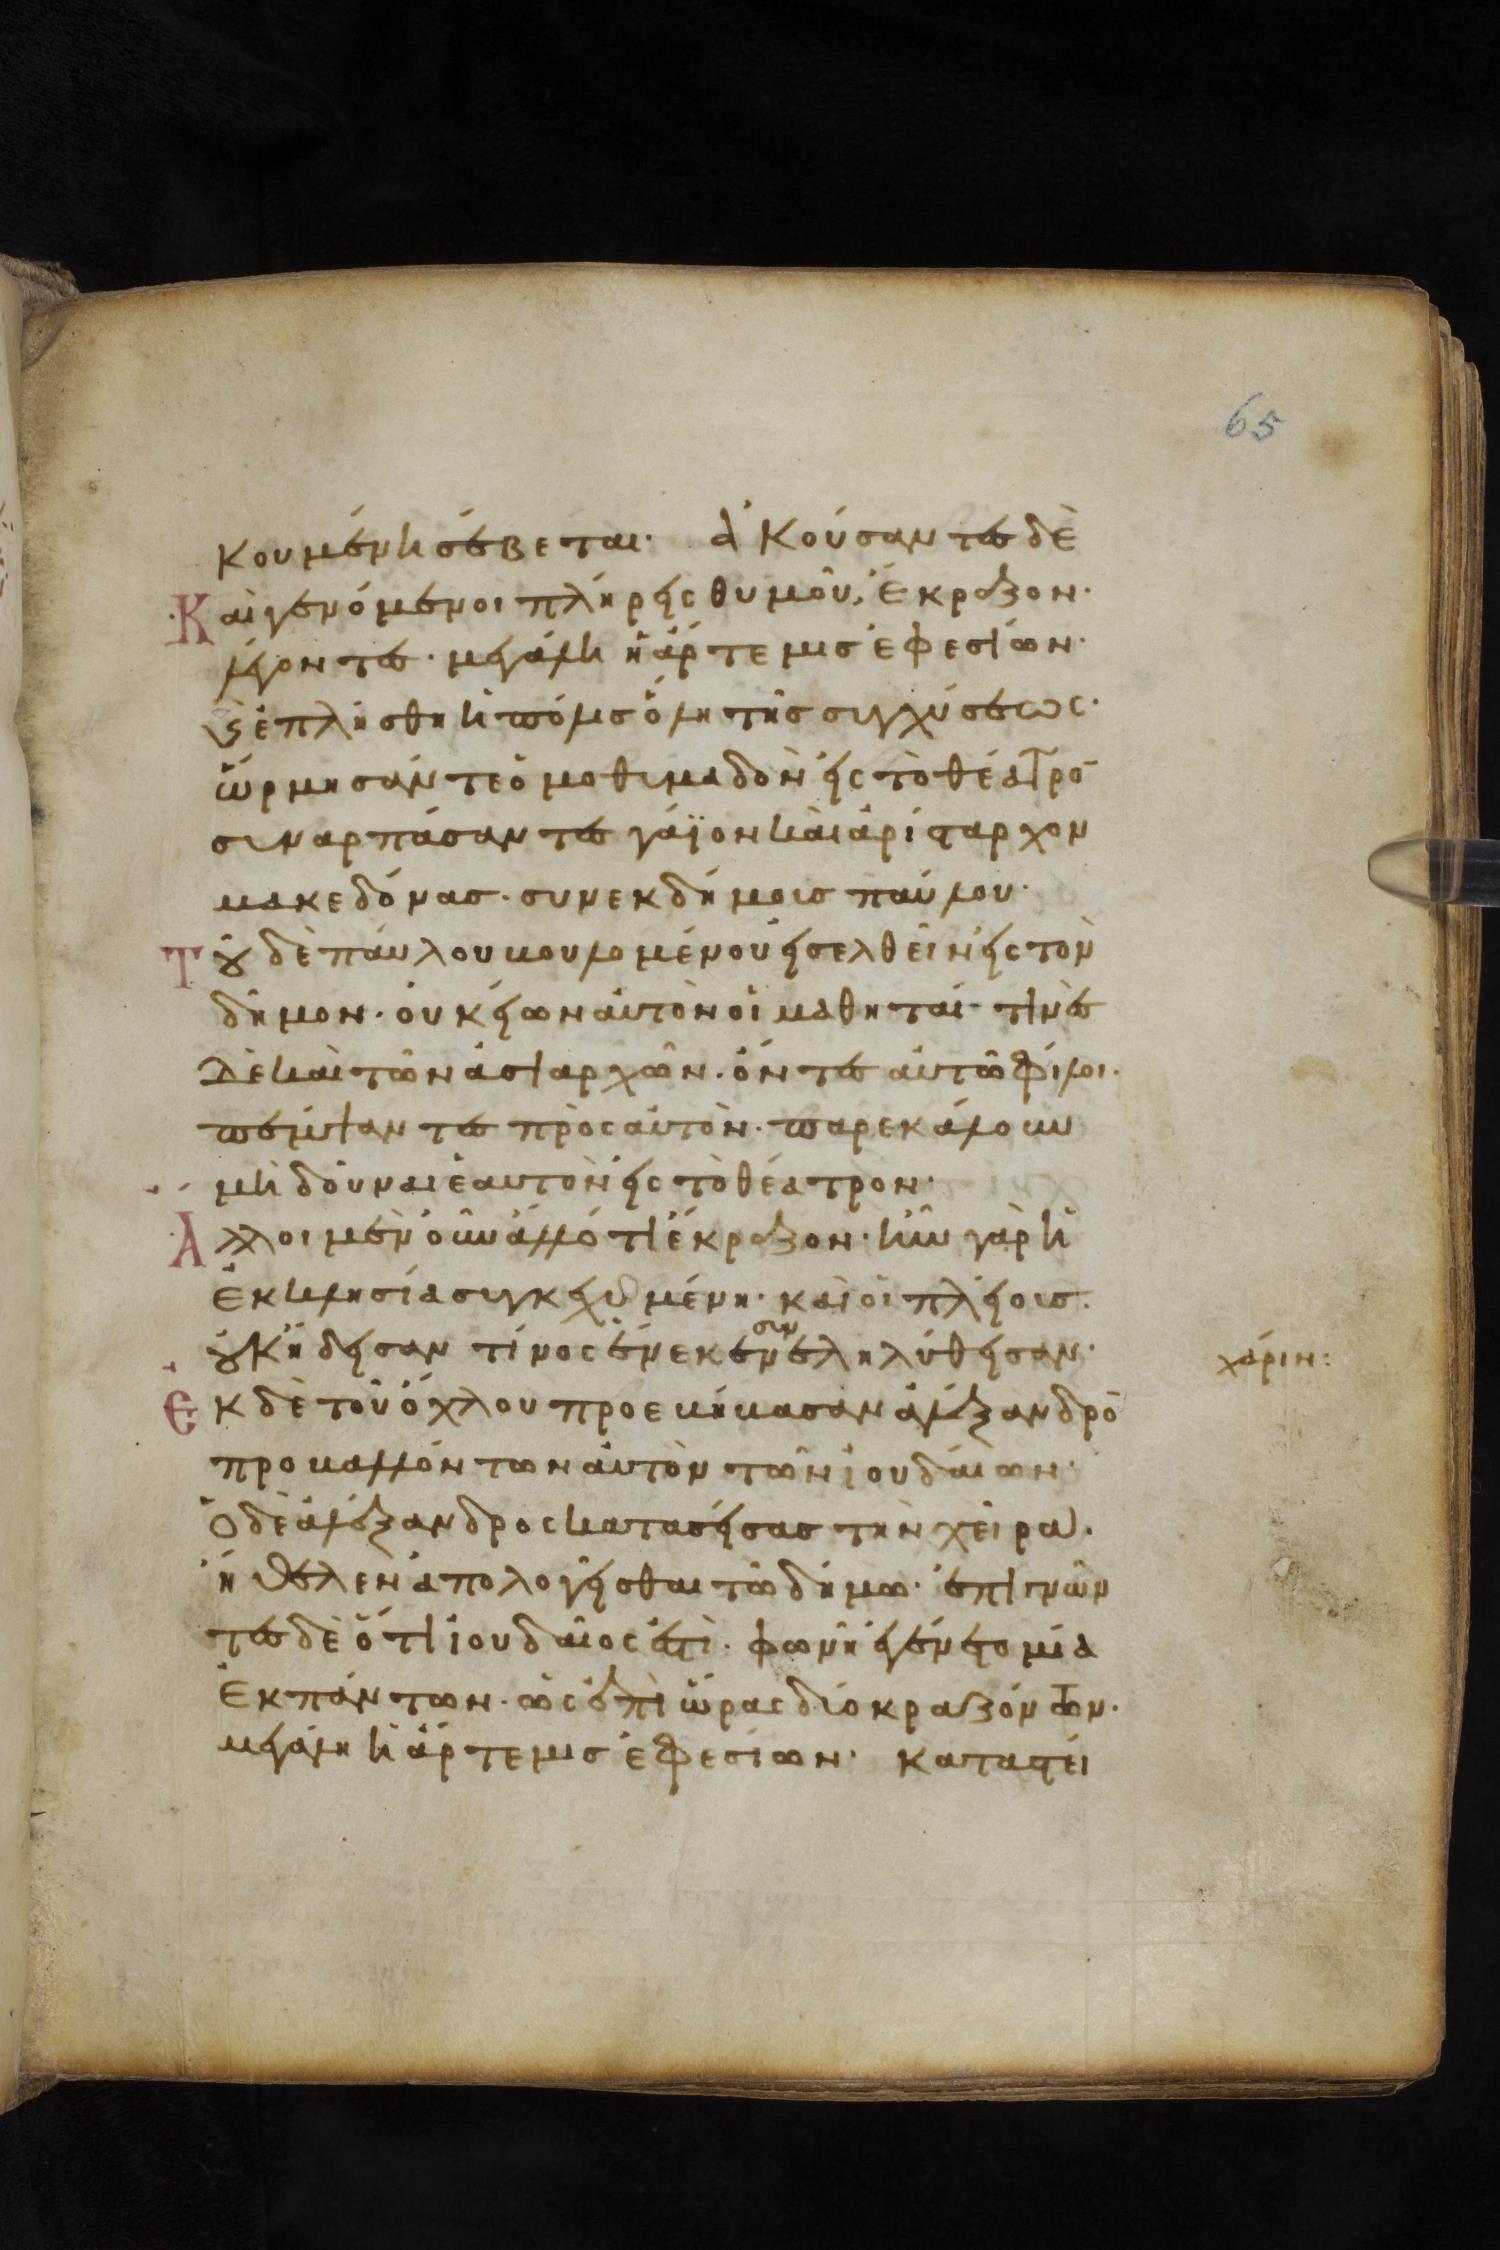 65
κουμένη σέβεται· ἀκούσαντες δὲ
καὶ γενόμενοι πλήρεις θυμοῦ, ἔκραζον·
λέγοντες· μεγάλη ἡ ἄρτεμις ἐφεσίων·
καὶ ἐπλήσθη ἡ πόλις ὅλη τῆς συγχύσεως·
ὥρμησάν τε ὁμοθυμαδὸν εἰς τὸ θέατρο̄
συναρπάσαντες γάϊον καὶ ἀρίσταρχον
μακεδόνας· συνεκδήμοις παύλου·
Τοῦ δὲ παύλου βουλομένου εἰσελθεῖν εἰς τὸν
δῆμον· οὐκ εἴων αὐτὸν οἱ μαθηταί· τινὲς
δὲ καὶ τῶν ἀσιαρχῶν· ὄντες αὐτῶ φίλοι·
πέμψαντες πρὸς αὐτὸν· παρεκάλουν
μὴ δοῦναι ἑαυτὸν εἰς τὸ θέατρον·
Ἄλλοι μὲν οὖν ἄλλό τι ἔκραζον· ἦν γὰρ ἡ
ἐκκλησία συγκεχυμένη· καὶ οἱ πλείοις·
οὐκ ἤδεισαν τίνος ἕνεκεν συνεληλύθεισαν·
χάριν:
Ἐκ δὲ τοῦ ὄχλου προεβίβασαν ἀλέξανδρο
προβαλλόντων αὐτὸν τῶν ἰουδαίων·
ὁ δὲ ἀλέξανδρος κατασείσας τὴν χεῖρα·
ἤθελεν ἀπολογεῖσθαι τῶ δήμω· ἐπιγνόν
τες δὲ ὅτι ἰουδαῖός ἐστι· φωνὴ ἐγένετο μία
ἐκ πάντων· ὡς ἐπὶ ὥρας δύο κραζόντων·
μεγάλη ἡ ἄρτεμις ἐφεσίων· καταστεί